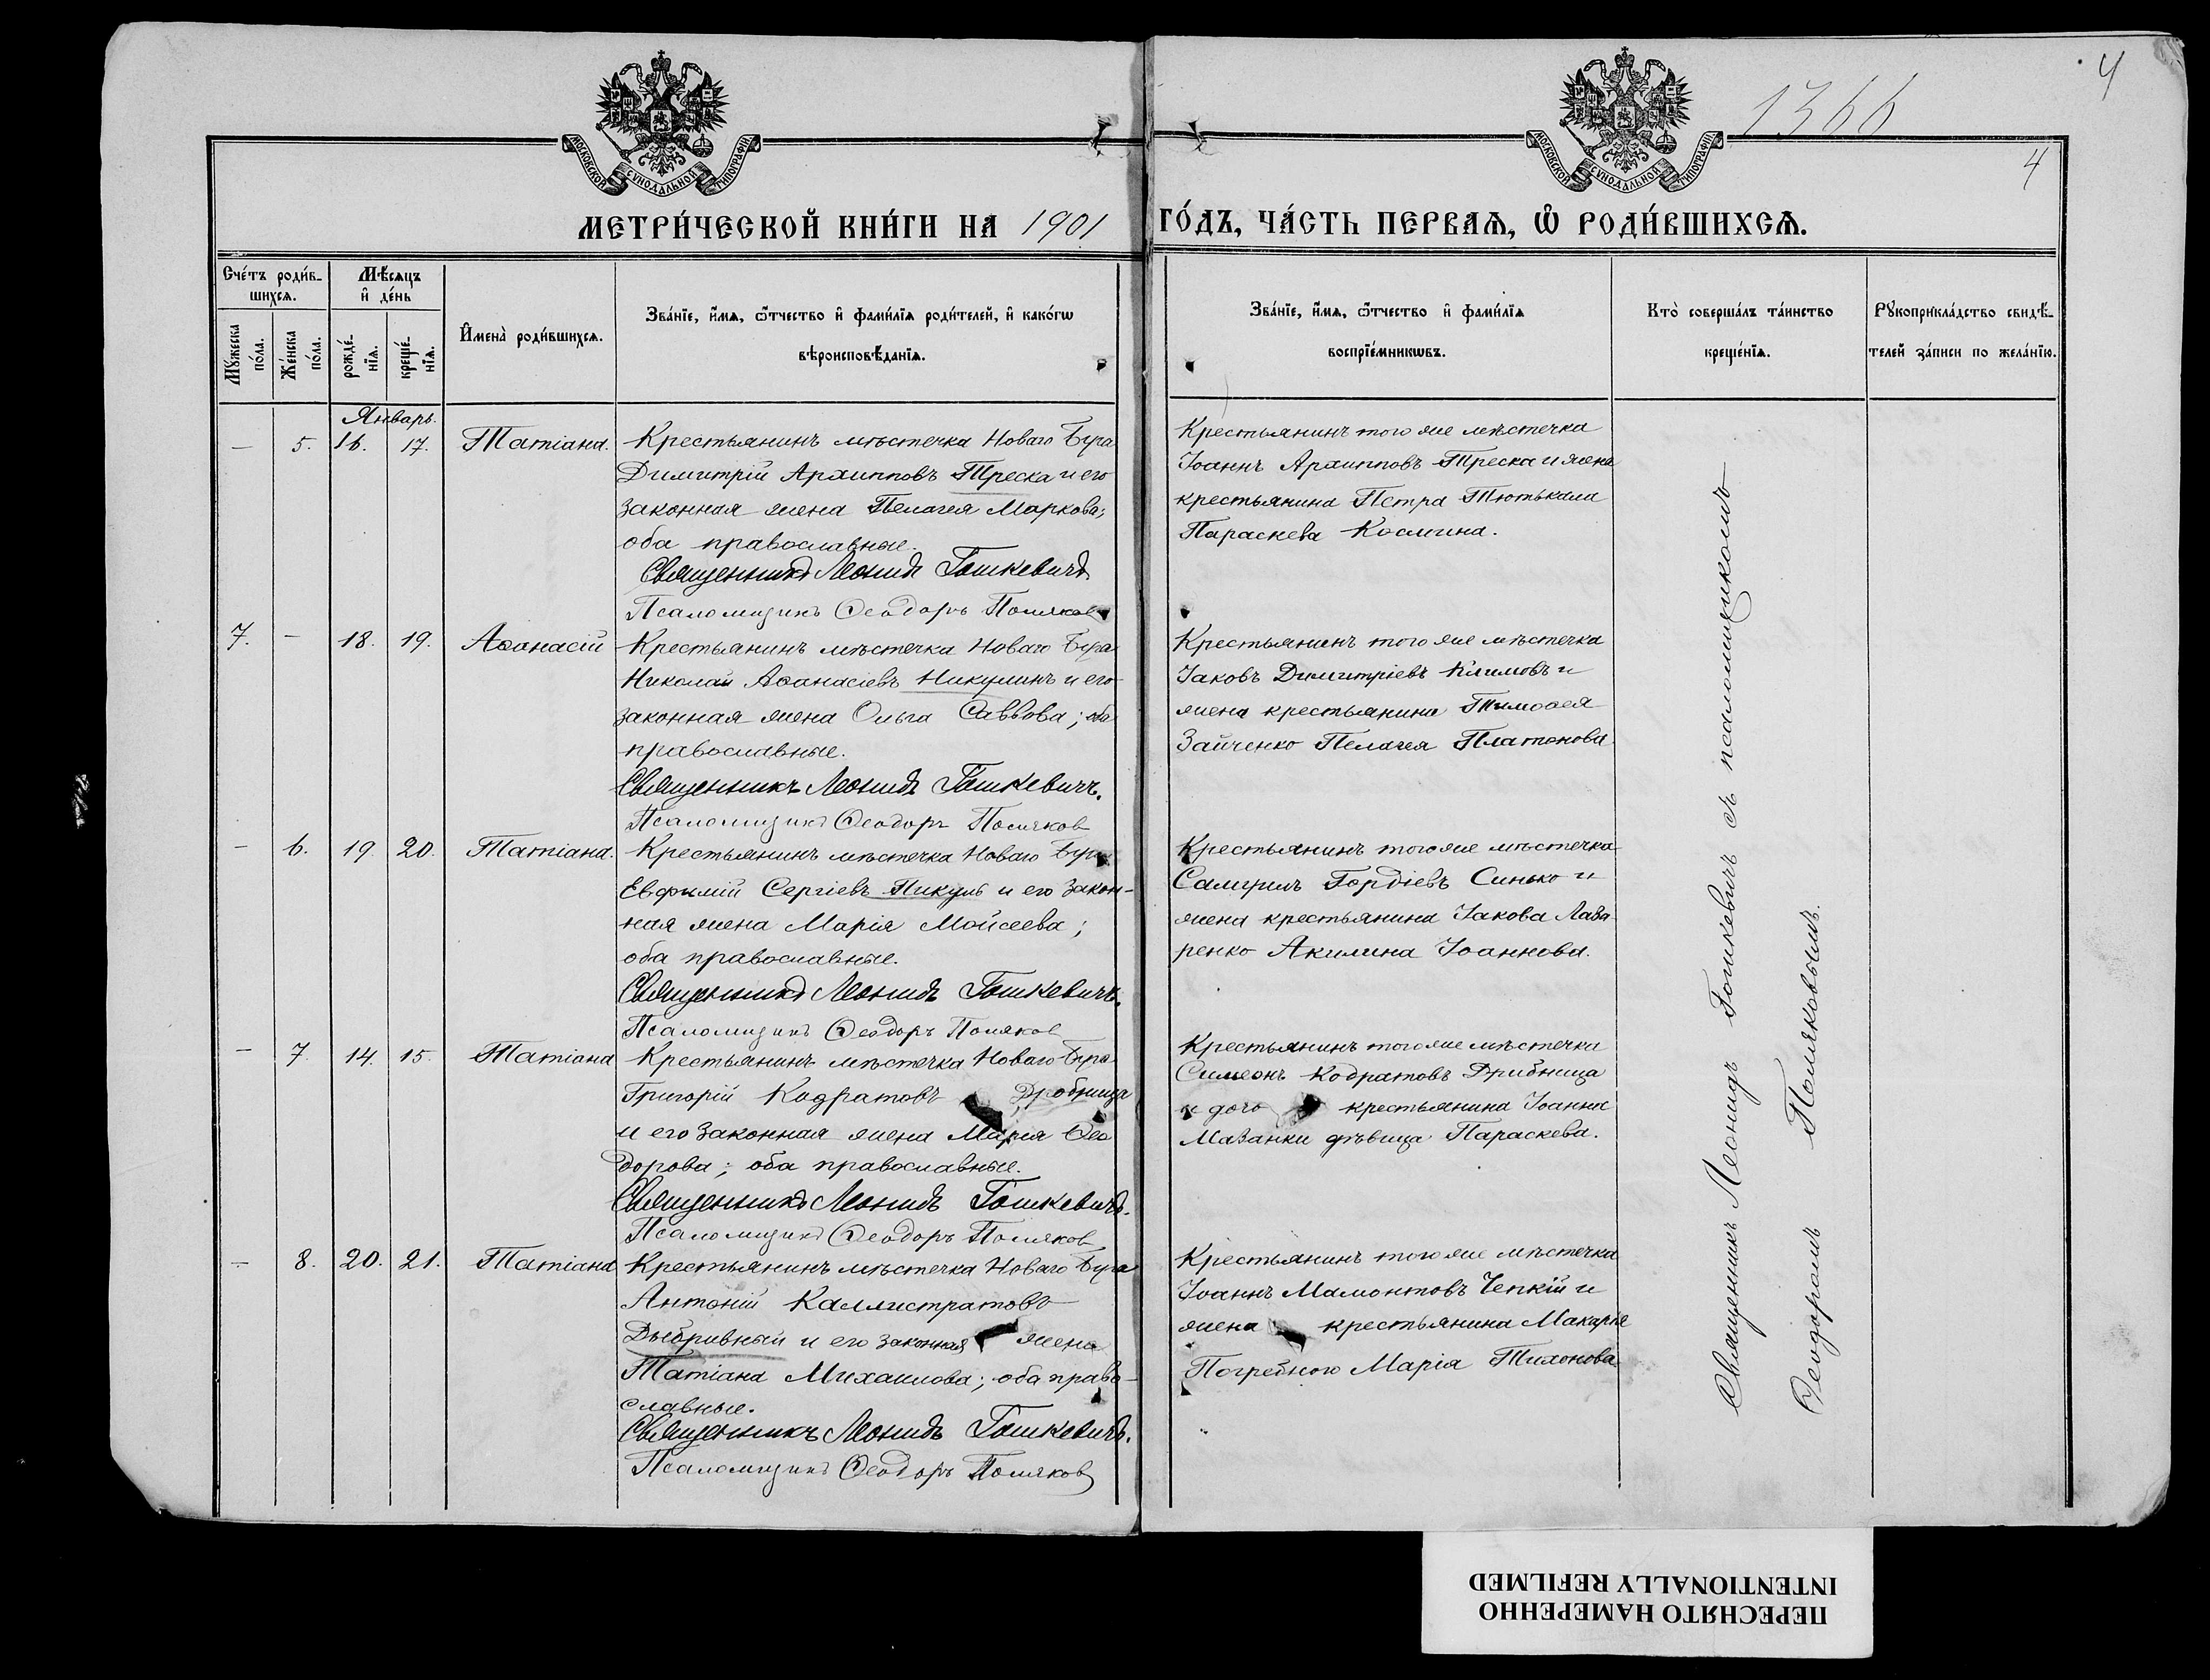 1366
4
4
МОСКОВСКОЙ СѴНОДАЛЬНОЙ ТИПОГРАФІИ.
МОСКОВСКОЙ СѴНОДАЛЬНОЙ ТИПОГРАФІИ.
МЕТРИ́ЧЕСКОЙ КНИ́ГИ НА 1901 ГО́ДЪ, ЧА́СТЬ ПЕРВАѦ, Ѡ҆ РОДИ́ВШИХСѦ.
Сче́тъ роди́в-
шихсѧ.
Мѣ́сѧцъ
и҆ де́нь
Мꙋ́жеска
по́ла.
Же́нска
по́ла.
рожде́-
нїѧ.
креще́-
нїѧ.
И҆мена̀ роди́вшихсѧ.
Зва́нїе, и҆́мѧ, ѻ҆́тчество и҆ фами́лїѧ роди́телей, и҆ како́гѡ
вѣроисповѣ́данїѧ.
Зва́нїе, и҆́мѧ, ѻ҆́тчество и҆ фами́лїѧ
воспрїе́мникѡвъ.
Кто̀ соверша́лъ та́инство
креще́нїѧ.
Рꙋкоприкла́дство свидѣ́-
телей за́писи по жела́нїю.
Январь.
— 5. 16. 17. Татіана. Крестьянинъ мѣстечка Новаго Буга
Димитрій Архипповъ Треска и его
законная жена Пелагея Маркова;
оба православные.
Священникъ Леонидъ Гошкевичъ
Псаломщикъ Ѳеодоръ Поляковъ
Крестьянинъ того же мѣстечка
Іоаннъ Архипповъ Треска и жена
крестьянина Петра Тютькала
Параскева Космина.
7. — 18. 19. Аѳанасій Крестьянинъ мѣстечка Новаго Буга
Николай Аѳанасіевъ Никулинъ и его
законная жена Ольга Саввова; оба
православные.
Священникъ Леонидъ Гошкевичъ.
Псаломщикъ Ѳеодоръ Поляков
Крестьянинъ того же мѣстечка
Іаковъ Димитріевъ Климовъ и
жена крестьянина Тимоѳея
Зайченко Пелагея Платонова
— 6. 19. 20. Татіана. Крестьянинъ мѣстечка Новаго Буга
Евфимій Сергіевъ Пикуль и его закон-
ная жена Марія Мойсеева;
оба православные.
Священникъ Леонидъ Гошкевичъ.
Псаломщикъ Ѳеодоръ Поляков
Крестьянинъ того же мѣстечка
Самуилъ Гордіевъ Синько и
жена крестьянина Іакова Лаза-
ренко Акилина Іоаннова.
— 7. 14. 15. Татіана Крестьянинъ мѣстечка Новаго Буга
Григорій Кодратовъ Дробница
и его законная жена Марія Ѳео
дорова; оба православные.
Священникъ Леонидъ Гошкевичъ.
Псаломщикъ Ѳеодоръ Поляков
Крестьянинъ того же мѣстечка
Симеонъ Кодратовъ Дрибница
и дочь крестьянина Іоанна
Мазанки дѣвица Параскева.
— 8. 20. 21. Татіана Крестьянинъ мѣстечка Новаго Буга
Антоній Каллистратовъ
Дыбривный и его законная жена
Татіана Михаилова; оба право-
славные.
Священникъ Леонидъ Гошкевичъ.
Псаломщикъ Ѳеодоръ Поляков
Крестьянинъ того же мѣстечка
Іоаннъ Мамонтовъ Чепкій и
жена крестьянина Макарія
Погребного Марія Тихонова
Священникъ Леонидъ Гошкевичъ съ псаломщикомъ
Ѳеодоромъ Поляковымъ.
ПЕРЕСНЯТО НАМЕРЕННО
INTENTIONALLY REFILMED